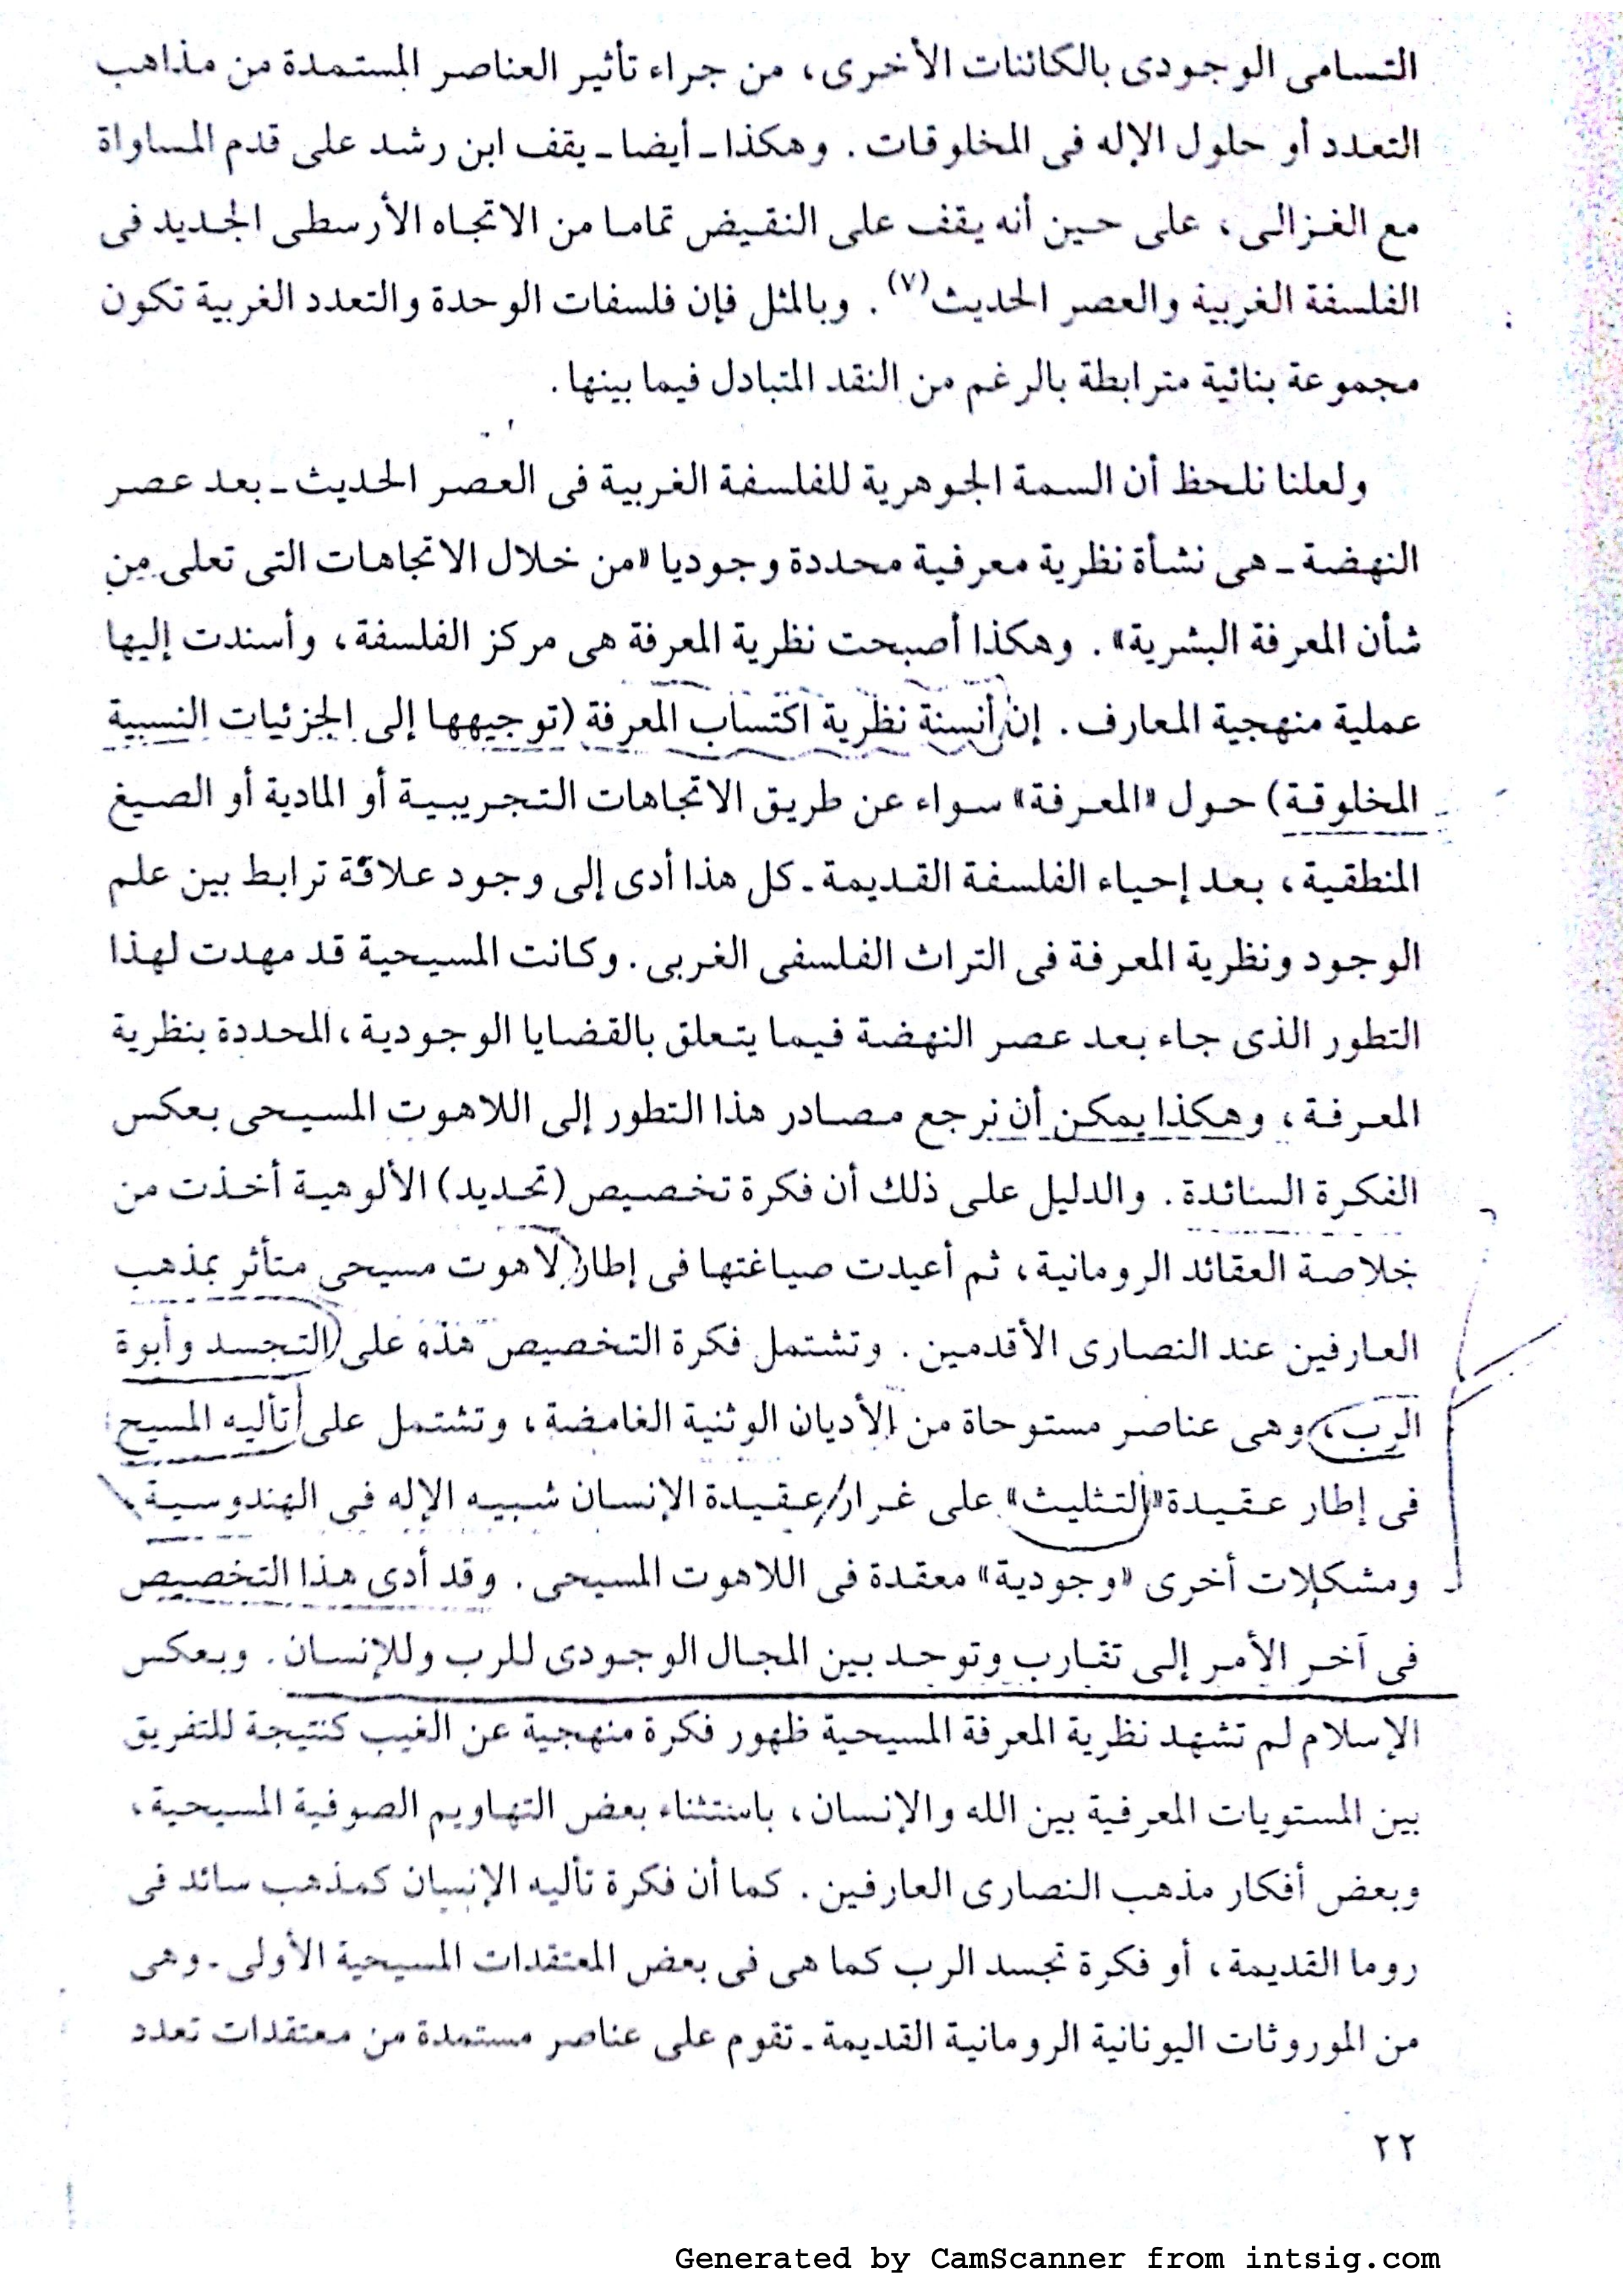 التسامى الوجودى بالكائنات الأخرى، من جراء تأثير العناصر المستمدة من مذاهب
التعدد أو حلول الإله فى المخلوقات. وهكذا ـ أيضا ـ يقف ابن رشد على قدم المساواة
مع الغزالى، على حين أنه يقف على النقيض تماما من الاتجاه الأرسطى الجديد فى
الفلسفة الغربية والعصر الحديث(٧). وبالمثل فإن فلسفات الوحدة والتعدد الغربية تكون
مجموعة بنائية مترابطة بالرغم من النقد المتبادل فيما بينها.
ولعلنا نلحظ أن السمة الجوهرية للفلسفة الغربية فى العصر الحديث ـ بعد عصر
النهضة ـ هى نشأة نظرية معرفية محددة وجوديا «من خلال الاتجاهات التى تعلى من
شأن المعرفة البشرية». وهكذا أصبحت نظرية المعرفة هى مركز الفلسفة، وأسندت إليها
عملية منهجية المعارف. إن أنسنة نظرية اكتساب المعرفة (توجيهها إلى الجزئيات النسبية
المخلوقة) حول «المعرفة» سواء عن طريق الاتجاهات التجريبية أو المادية أو الصيغ
المنطقية، بعد إحياء الفلسفة القديمة ـ كل هذا أدى إلى وجود علاقة ترابط بين علم
الوجود ونظرية المعرفة فى التراث الفلسفى الغربى. وكانت المسيحية قد مهدت لهذا
التطور الذى جاء بعد عصر النهضة فيما يتعلق بالقضايا الوجودية، المحددة بنظرية
المعرفة، وهكذا يمكن أن نرجع مصادر هذا التطور إلى اللاهوت المسيحى بعكس
الفكرة السائدة. والدليل على ذلك أن فكرة تخصيص (تحديد) الألوهية أخذت من
خلاصة العقائد الرومانية، ثم أعيدت صياغتها فى إطار لاهوت مسيحى متأثر بمذهب
العارفين عند النصارى الأقدمين. وتشتمل فكرة التخصيص هذه على التجسد وأبوة
الرب، وهى عناصر مستوحاة من الأديان الوثنية الغامضة، وتشتمل على تأليه المسيح
فى إطار عقيدة «التثليث» على غرار عقيدة الإنسان شبيه الإله فى الهندوسية،
ومشكلات أخرى «وجودية» معقدة فى اللاهوت المسيحى. وقد أدى هذا التخصيص
فى آخر الأمر إلى تقارب وتوحد بين المجال الوجودى للرب وللإنسان. وبعكس
الإسلام لم تشهد نظرية المعرفة المسيحية ظهور فكرة منهجية عن الغيب كنتيجة للتفريق
بين المستويات المعرفية بين الله والإنسان، باستثناء بعض التهاويم الصوفية المسيحية،
وبعض أفكار مذهب النصارى العارفين. كما أن فكرة تأليه الإنسان كمذهب سائد فى
روما القديمة، أو فكرة تجسد الرب كما هى فى بعض المعتقدات المسيحية الأولى ـ وهى
من الموروثات اليونانية الرومانية القديمة ـ تقوم على عناصر مستمدة من معتقدات تعدد
٢٢
Generated by CamScanner from intsig.com